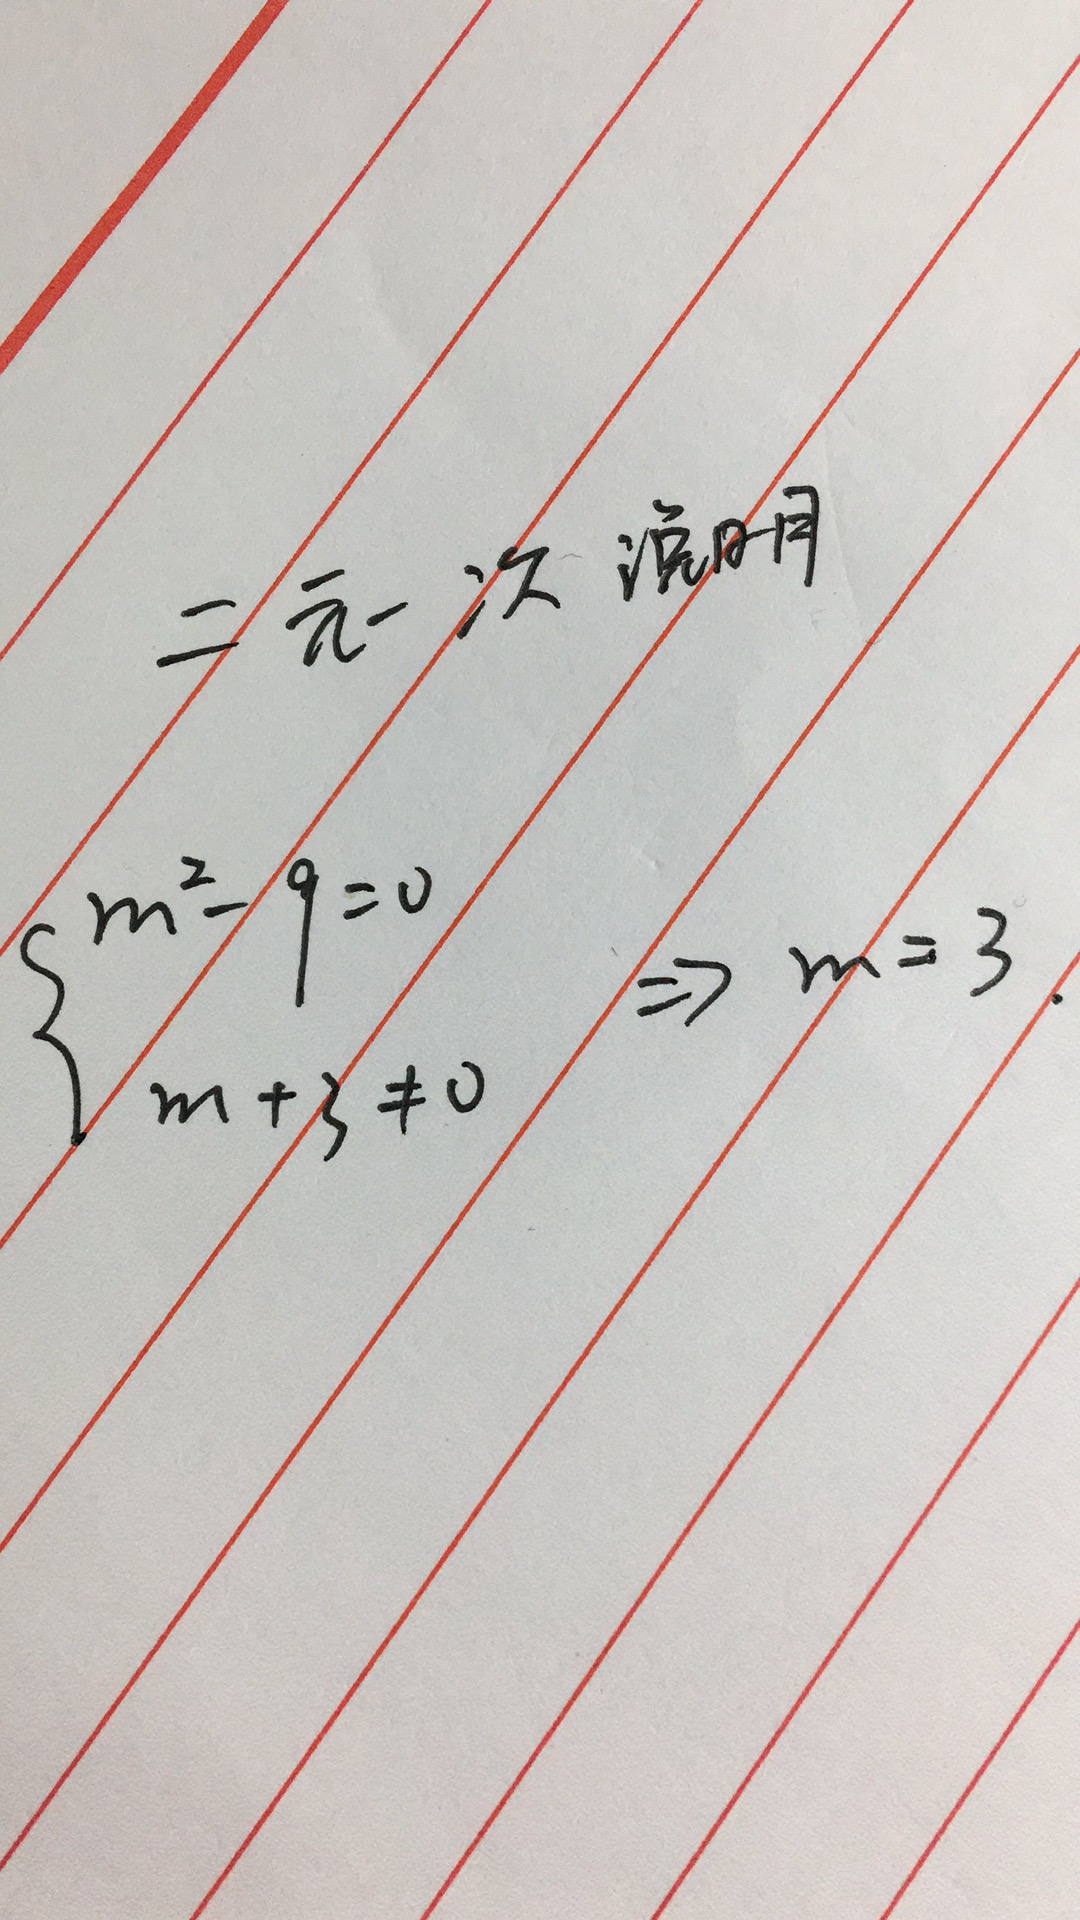 二元一次说明
{ m²-9=0
m+3≠0 ⇒ m=3.